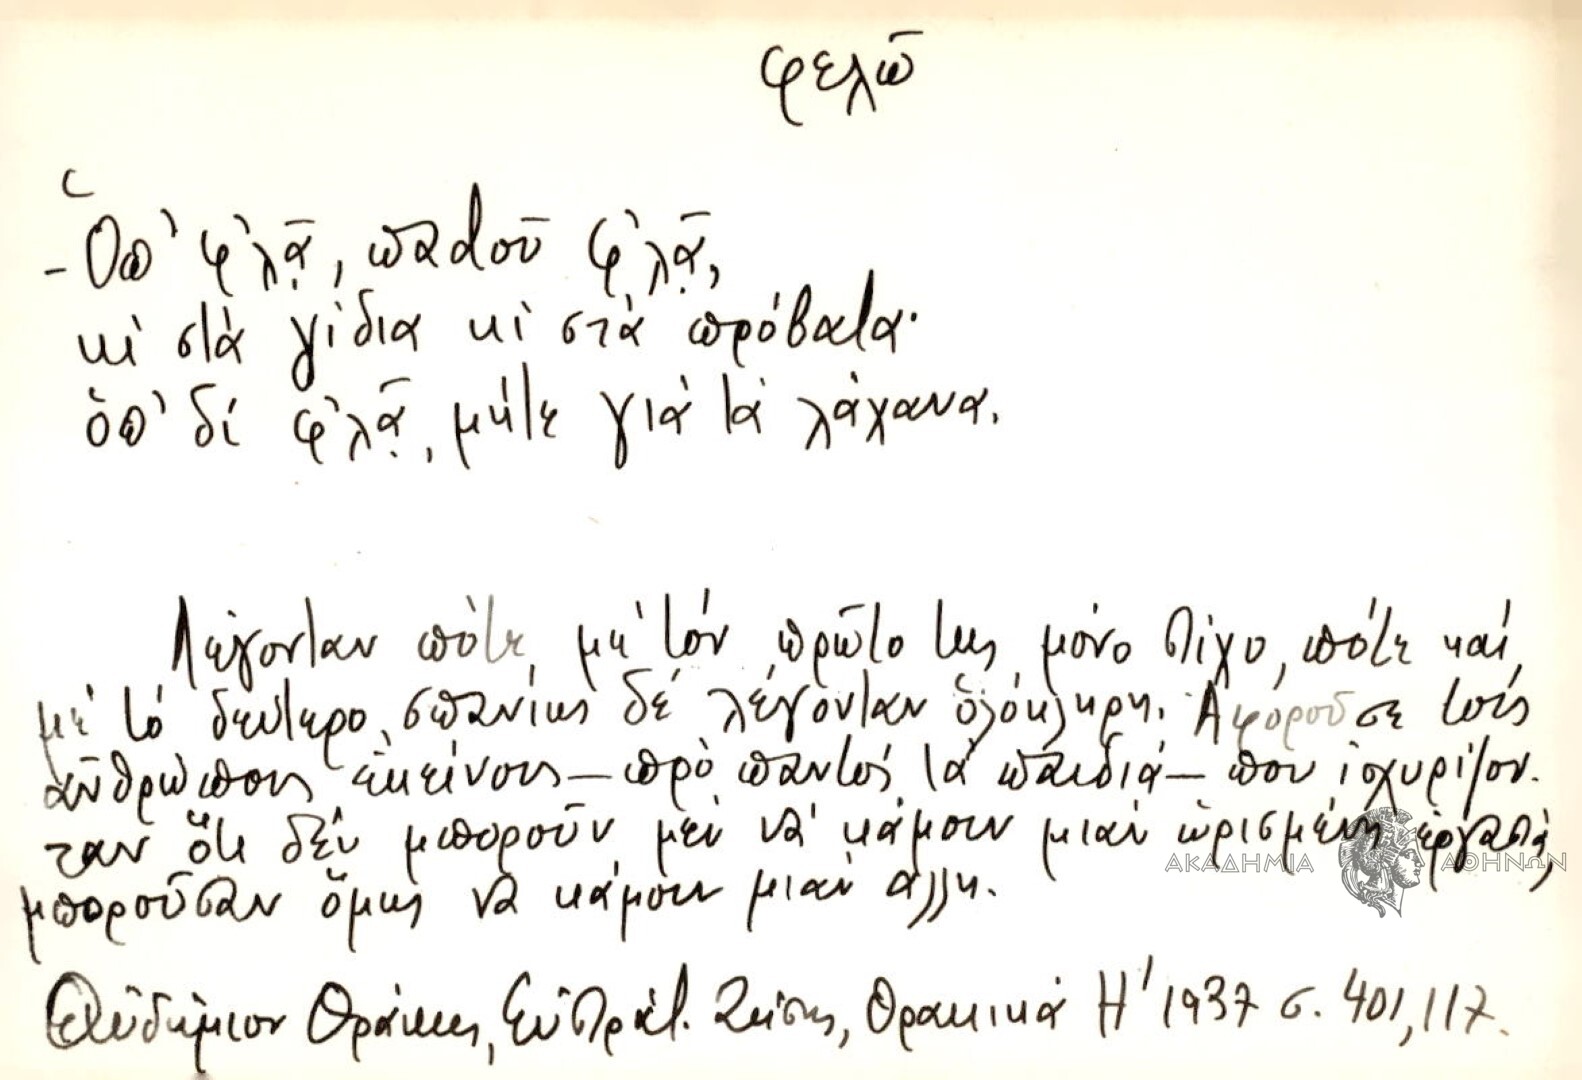 φελῶ
- Ὁπ' φ'λᾷ, παdοῦ φ'λᾷ,
κὶ στὰ γίδια κὶ στὰ πρόβατα·
ὁπ' δὲ φ'λᾷ, μήτε γιὰ τὰ λάχανα.
Λέγονταν πότε μὲ τὸν πρῶτο της μόνο στίχο, πότε καὶ
μὲ τὸ δεύτερο, σπανίως δὲ λέγονταν ὁλόκληρη. Ἀφοροῦσε τοὺς
ἀνθρώπους ἐκείνους – πρὸ παντὸς τὰ παιδιὰ – ποὺ ἰσχυρίζον-
ταν ὅτι δὲν μποροῦν μὲν νὰ κάμουν μιὰν ὡρισμένη ἐργασία,
μποροῦσαν ὅμως νὰ κάμουν μιὰν ἄλλη.
Θρᾴκης, Εὐστράτ. Ζήσης, Θρακικά Η' 1937 σ. 401, 117.
ΑΚΑΔΗΜΙΑ ΑΘΗΝΩΝ